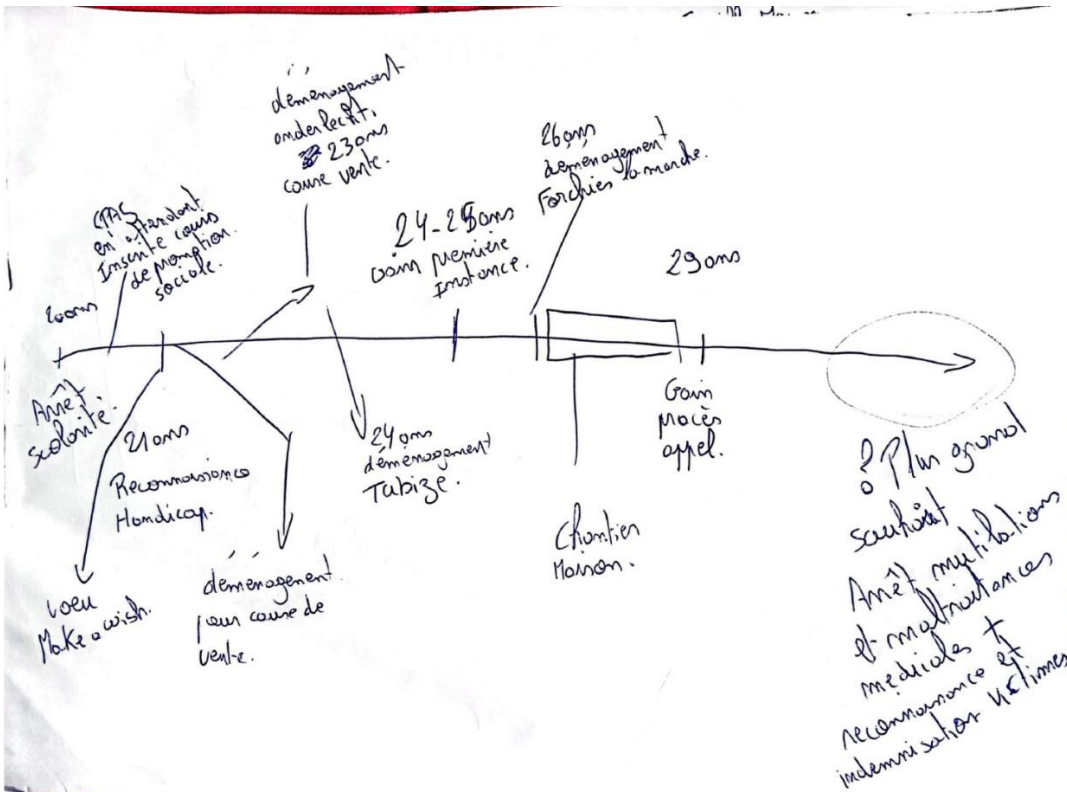 20ans
Arrêt
scolarité.
CPAS
en attendant
Inscrite cours
de promotion
sociale.
21ans
Reconnaissance
Handicap.
voeu
Make a wish.
déménagement
pour cause de
vente.
déménagement
anderlecht,
23ans
cause vente.
24ans
déménagement
Tubize.
24-25ans
Gain première
Instance.
26ans
déménagement
Forchies la marche.
Chantier
Maison.
29ans
Gain
procès
appel.
? Plus grand
souhait
Arrêt mutilations
et maltraitances
médicales +
reconnaissance et
indemnisation victimes